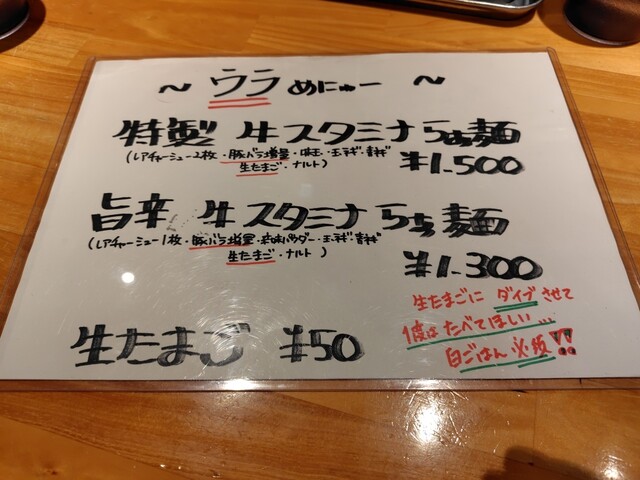 ~ ウラ めにゅー ~
特製 牛スタミナらぁ麺
(レアチャーシュー2枚・豚バラ増量・味玉・玉ネギ・青ネギ
生たまご・ナルト)
¥1.500
旨辛 牛スタミナらぁ麺
(レアチャーシュー1枚・豚バラ増量・旨味パウダー・玉ネギ・青ネギ
生たまご・ナルト)
¥1.300
生たまごに ダイブさせて
1度は たべてほしい…
白ごはん 必須!!
生たまご ¥50